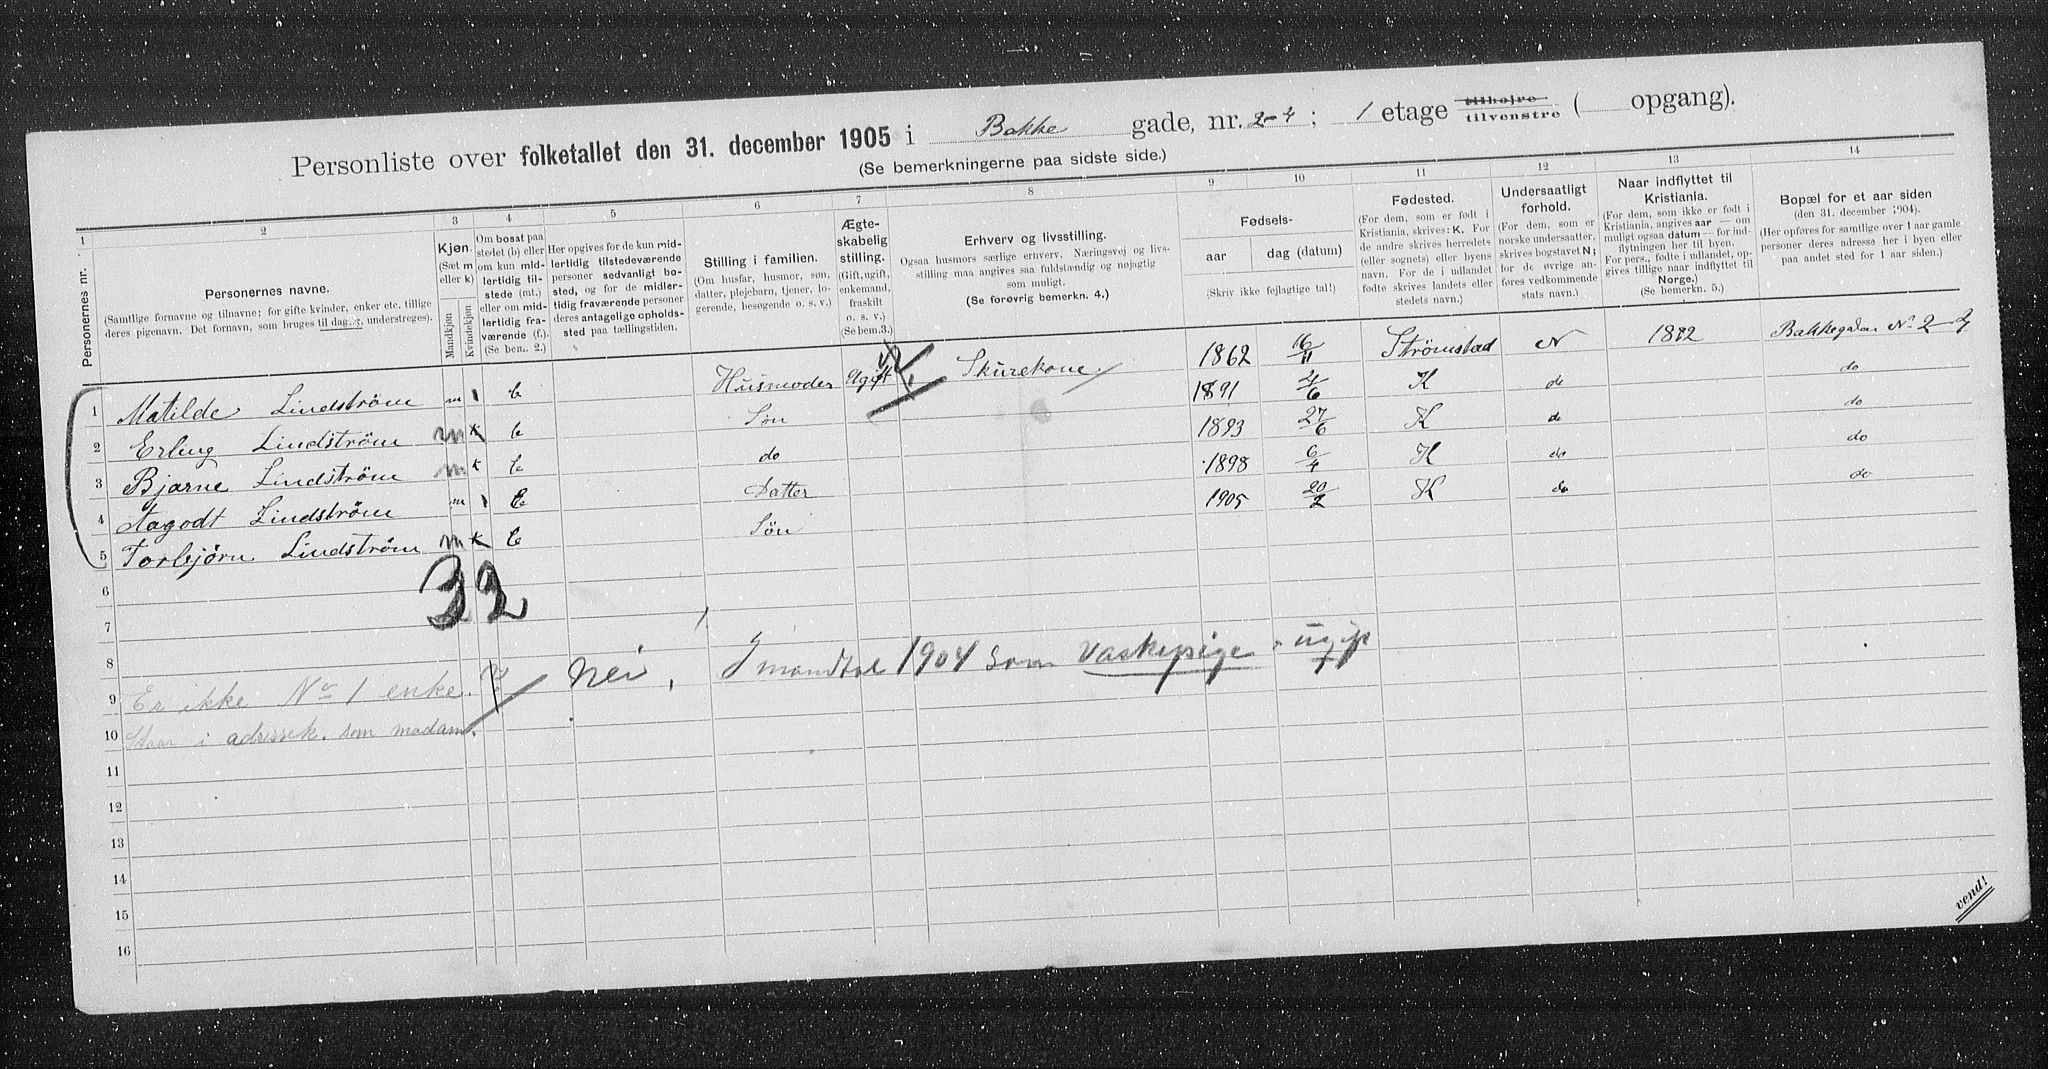 Personliste over folketallet den 31. december 1905 i Bakke gade, nr. 2-4; 1 etage tilhøjre tilvenstre ( opgang).
(Se bemerkningerne paa sidste side.)
1 2 3 4 5 6 7 8 9 10 11 12 13 14
Personernes nr.
Personernes navne.
(Samtlige fornavne og tilnavne; for gifte kvinder, enker etc. tillige deres pigenavn. Det fornavn, som bruges til daglig, understreges).
Kjøn. (Sæt m eller k)
Mandkjøn
Kvindekjøn
Om bosat paa stedet (b) eller om kun midlertidig tilstede (mt.) eller om midlertidig fraværende (f.). (Se bem. 2.)
Her opgives for de kun midlertidig tilstedeværende personer sedvanligt bosted, og for de midlertidig fraværende personer deres antagelige opholdssted paa tællingstiden.
Stilling i familien.
(Om husfar, husmor, søn, datter, plejebarn, tjener, logerende, besøgende o. s. v.)
Ægteskabelig stilling.
(Gift, ugift, enkemand, fraskilt o. s. v.) (Se bem. 3.)
Erhverv og livsstilling.
Ogsaa husmors særlige erhverv. Næringsvej og livsstilling maa angives saa fuldstændig og nøjagtig som muligt.
(Se forøvrig bemerkn. 4.)
Fødsels-
aar
dag (datum)
(Skriv ikke fejlagtige tal!)
Fødested.
(For dem, som er født i Kristiania, skrives: K. For de andre skrives herredets (eller sognets) eller byens navn. For de i udlandet fødte skrives landets eller stedets navn.)
Undersaatligt forhold.
(For dem, som er norske undersaatter, skrives bogstavet N; for de øvrige anføres vedkommende stats navn.)
Naar indflyttet til Kristiania.
(For dem, som ikke er født i Kristiania, angives aar — om muligt ogsaa datum — for indflytningen her til byen. For pers., fødte i udlandet, opgives tillige naar indflyttet til Norge.)
(Se bemerkn. 5.)
Bopæl for et aar siden
(den 31. december 1904).
(Her opføres for samtlige over 1 aar gamle personer deres adresse her i byen eller paa andet sted for 1 aar siden.)
1 Matilde Lindström m 1 b Husmoder Ugift Skurekone 1862 16/11 Strömstad N 1882 Bakkegaden No 2-4
2 Erling Lindström m k b Søn 1891 4/6 K do do
3 Bjarne Lindström m k b do 1893 27/6 K do do
4 Aagodt Lindström m 1 b Datter 1898 6/4 K do do
5 Torbjörn Lindström m k b Søn 1905 20/2 K do do
6
32
7
8
9 Er ikke No 1 enke. ? Nei, I mandtal 1904 som Vaskepige - ugift
10 Staar i adressek. som madam.
11
12
13
14
15
16
vend!